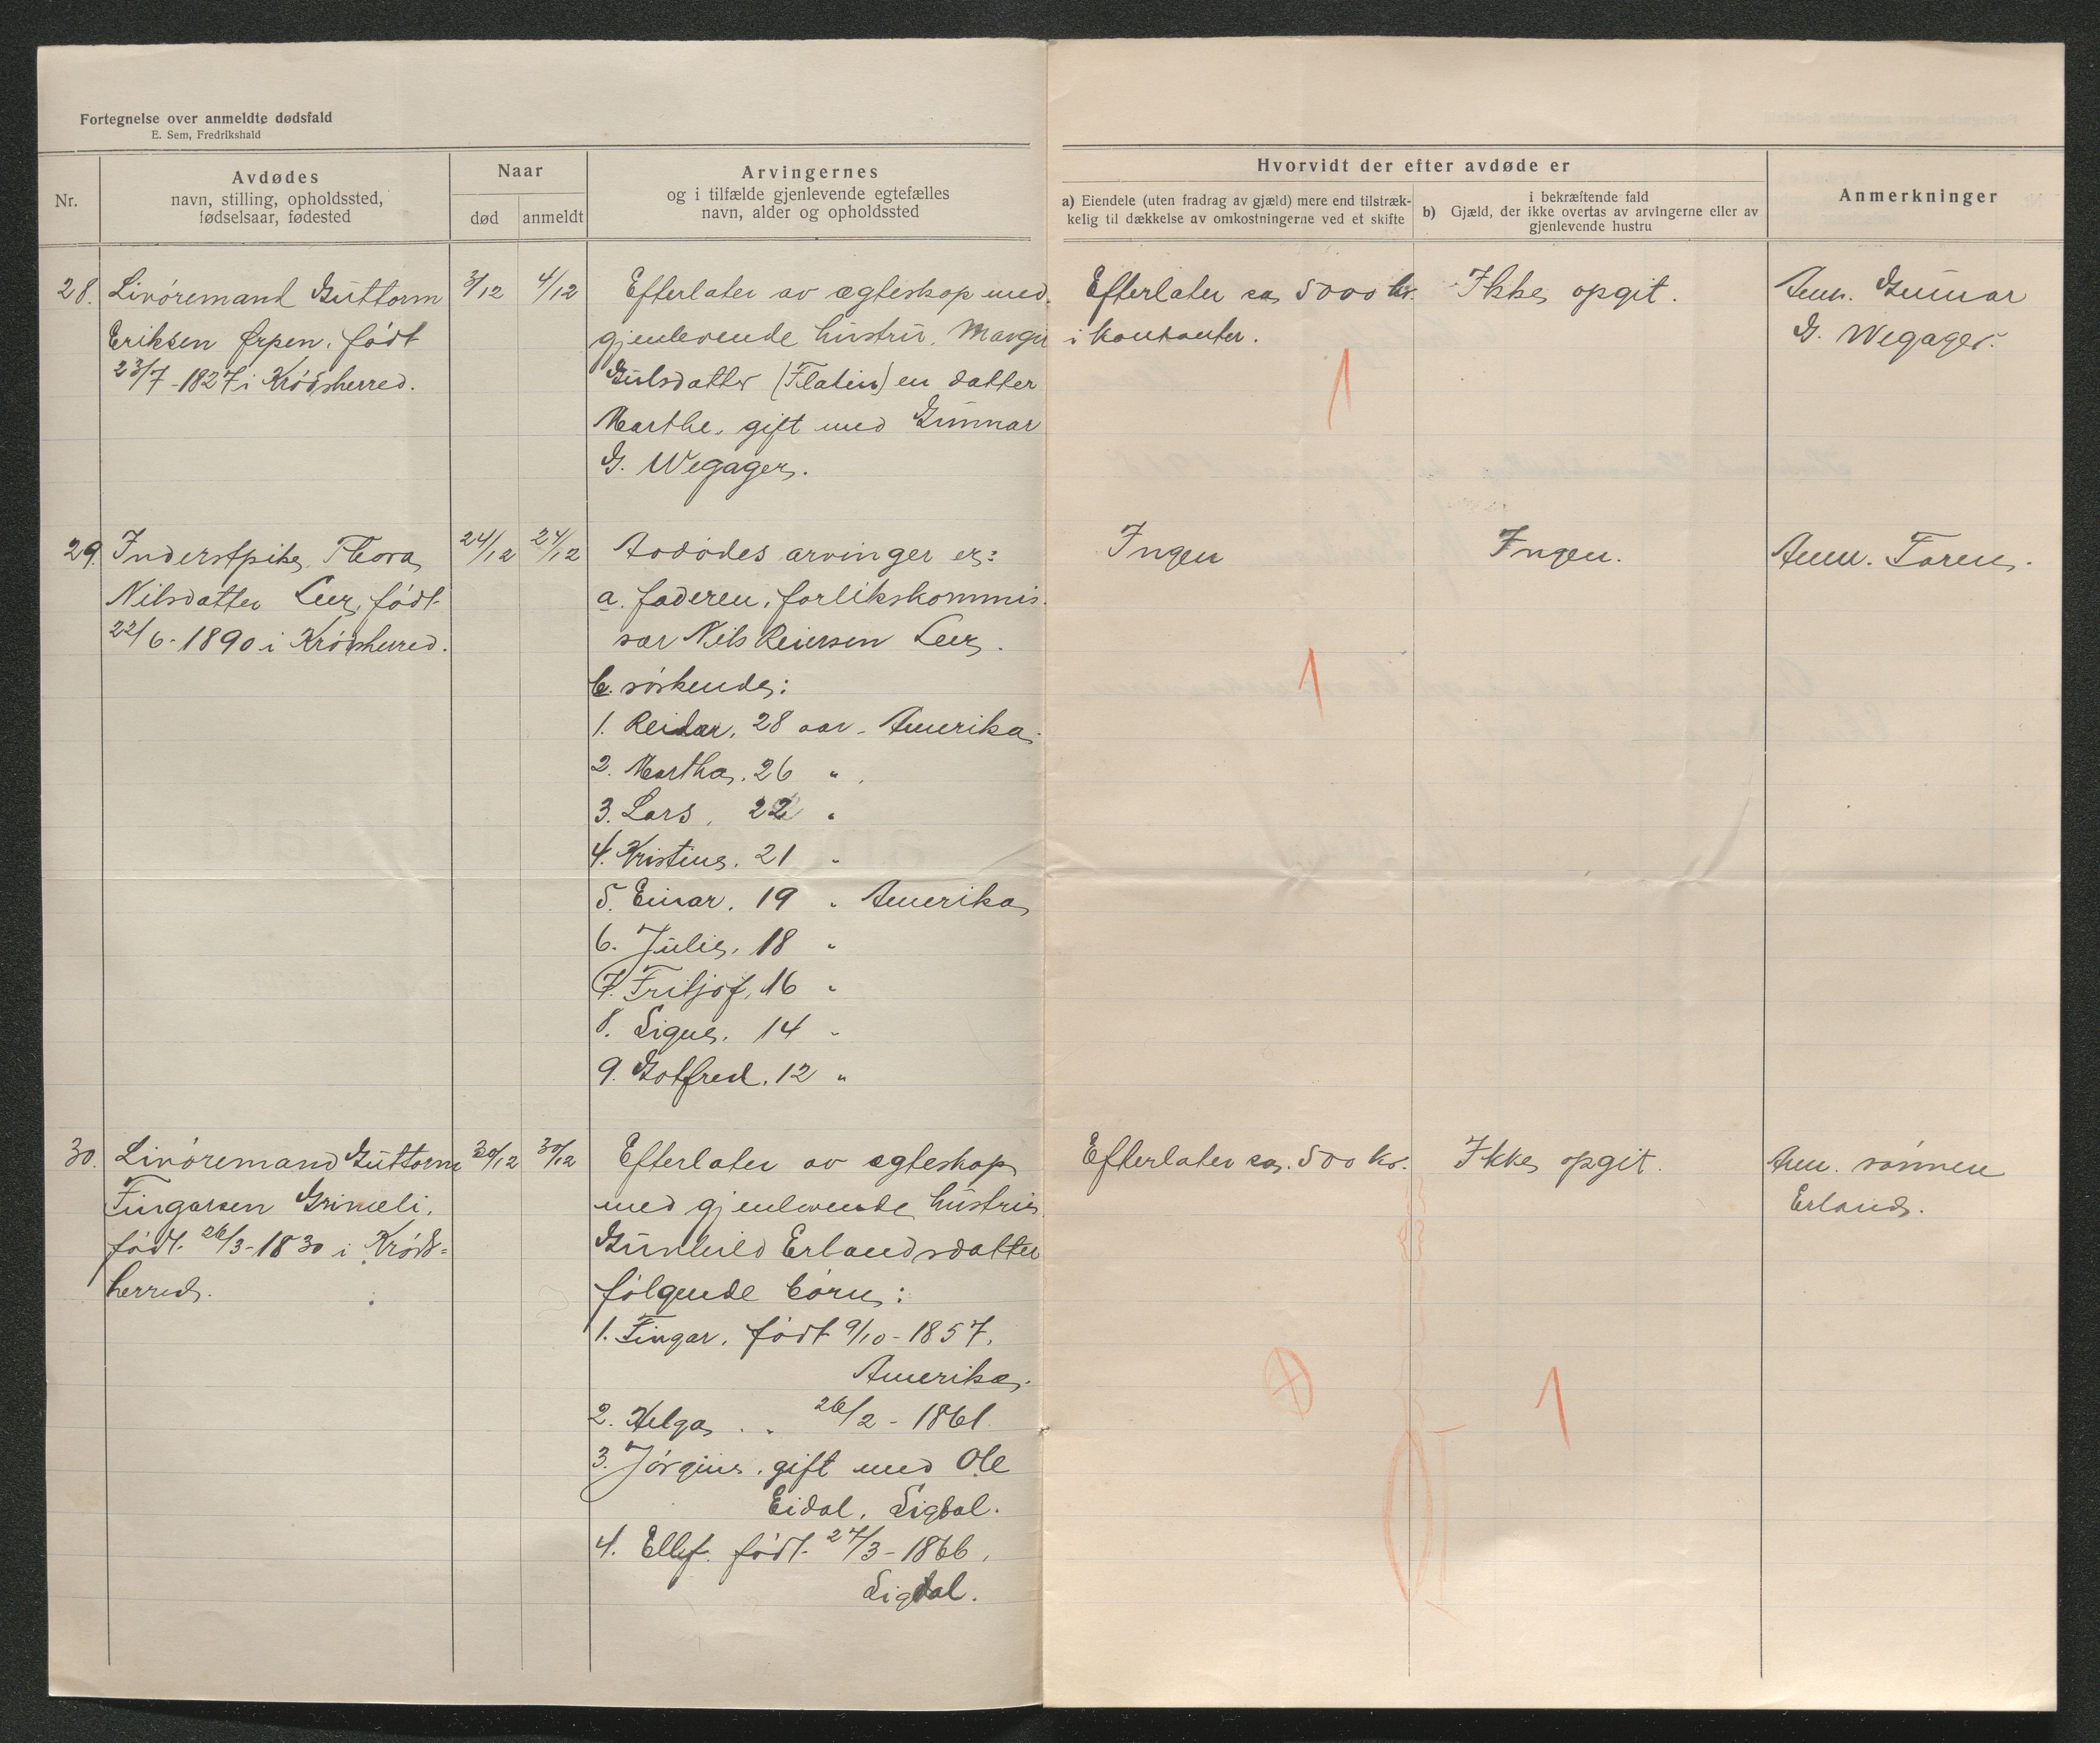 Fortegnelse over anmeldte dødsfald
E. Sem, Fredrikshald
Nr.
Avdødes
navn, stilling, opholdssted,
fødselsaar, fødested
Naar
død
anmeldt
Arvingernes
og i tilfælde gjenlevende egtefælles
navn, alder og opholdssted
Hvorvidt der efter avdøde er
a) Eiendele (uten fradrag av gjæld) mere end tilstræk-
kelig til dækkelse av omkostningerne ved et skifte
i bekræftende fald
b) Gjæld, der ikke overtas av arvingerne eller av
gjenlevende hustru
Anmerkninger
28.
Livøremand Guttorm
Eriksen Ørpen, født
23/7-1827 i Krødsherred.
3/12
4/12
Efterlater av ægteskap med
gjenlevende hustru, Margit
Gulsdatter (Flatin) en datter
Marthe, gift med Gunnar
G. Wegager.
Efterlater ca 5000 kr.
i kontanter.
1
Ikke opgit.
Anm. Gunnar
G. Wegager.
29.
Inderstpike, Thora
Nilsdatter Leer, født
22/6-1890 i Krødsherred.
24/12
24/12
Avdødes arvinger er:
a. faderen, forlikskommis-
sær Nils Reiersen Leer.
b. søskende:
1. Reidar, 28 aar - Amerika.
2. Martha, 26 "
3. Lars, 22 "
4. Kristine, 21 "
5. Einar, 19 " Amerika
6. Julie, 18 "
7. Fritjof, 16 "
8. Signe, 14 "
9. Gotfred, 12 "
Ingen
1
Ingen.
Anm. Faren.
30.
Livøremand Guttorm
Fingarsen Grimeli,
født 26/3-1830 i Krøds-
herred.
30/12
30/12
Efterlater av ægteskap
med gjenlevende hustru
Gunhild Erlandsdatter
følgende børn:
1. Fingar, født 9/10-1857,
Amerika.
2. Helga " 26/2-1861.
3. Jørgine, gift med Ole
Eidal, Sigdal.
4. Ellef, født 27/3-1866,
Sigdal.
Efterlater ca. 500 kr.
Ikke opgit.
1
Anm. sønnen
Erland.